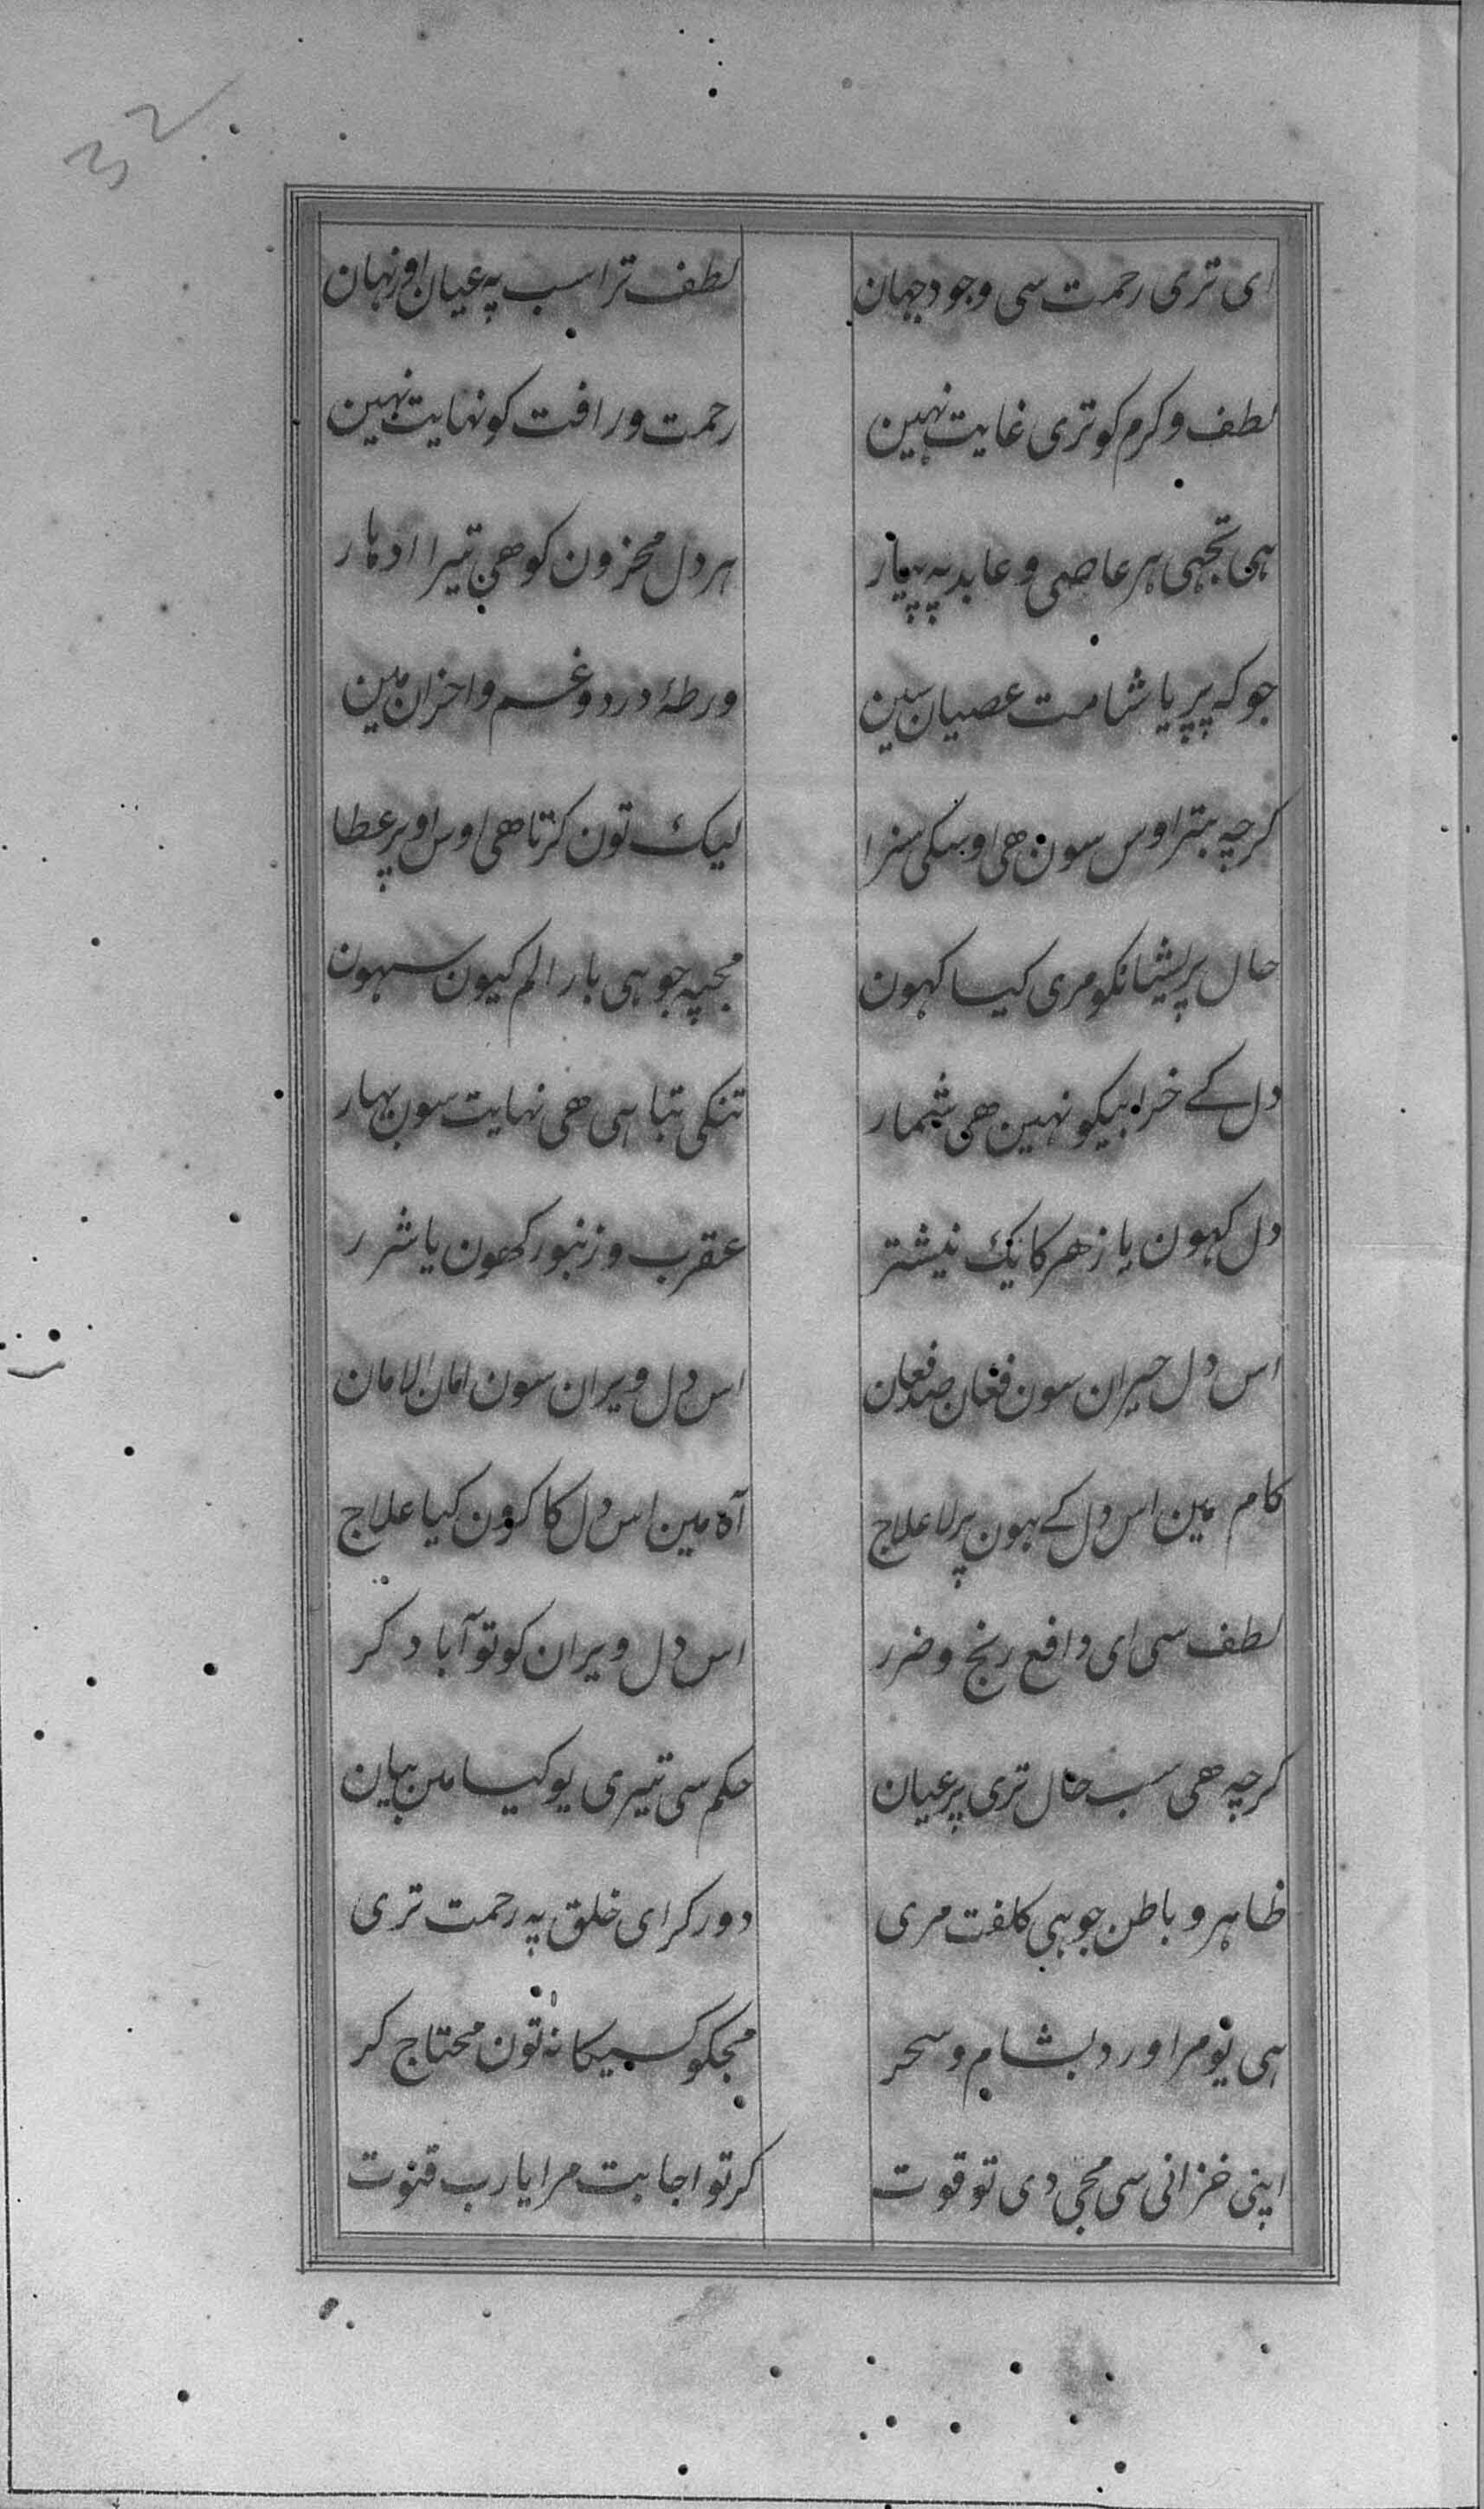 32
ای تری رحمت سی وجود جهان لطف ترا سب په عیان اور نهان
لطف و کرم کو تری غایت نهین رحمت و رافت کو نهایت نهین
هی تجهی هر عاصی و عابد په پیار هر دل محزون کو هی تیرا ادهار
جو که پریا شامت عصیان سین ورطهٔ درد و غم و احزان مین
کرچه بتر اوس سون هی اوسکی سزا لیک تون کرتا هی اوس اوپر عطا
حال پریشانکو مری کیا کهون مجپه جو هی بار الم کیون سهون
دل کے خرابیکو نهین هی شمار تنکی تباهی هی نهایت سون بهار
دل کهون یا زهر کا یک نیشتر عقرب و زنبور کهون یا شرر
اس دل حیران سون فغان صد فغان اس دل ویران سون امان الامان
کام مین اس دل کے هون پر لاعلاج آه مین اس دل کا کرون کیا علاج
لطف سی ای دافع رنج و ضرر اس دل ویران کو تو آباد کر
کرچه هی سب حال تری پر عیان حکم سی تیری یو کیا من بیان
ظاهر و باطن جو هی کلفت مری دور کر ای خلق په رحمت تری
هی یو مرا ورد بشام و سحر مجکو کسیکا نه تون محتاج کر
اپنی خزانی سی مجی دی تو قوت کر تو اجابت مرا یارب قنوت